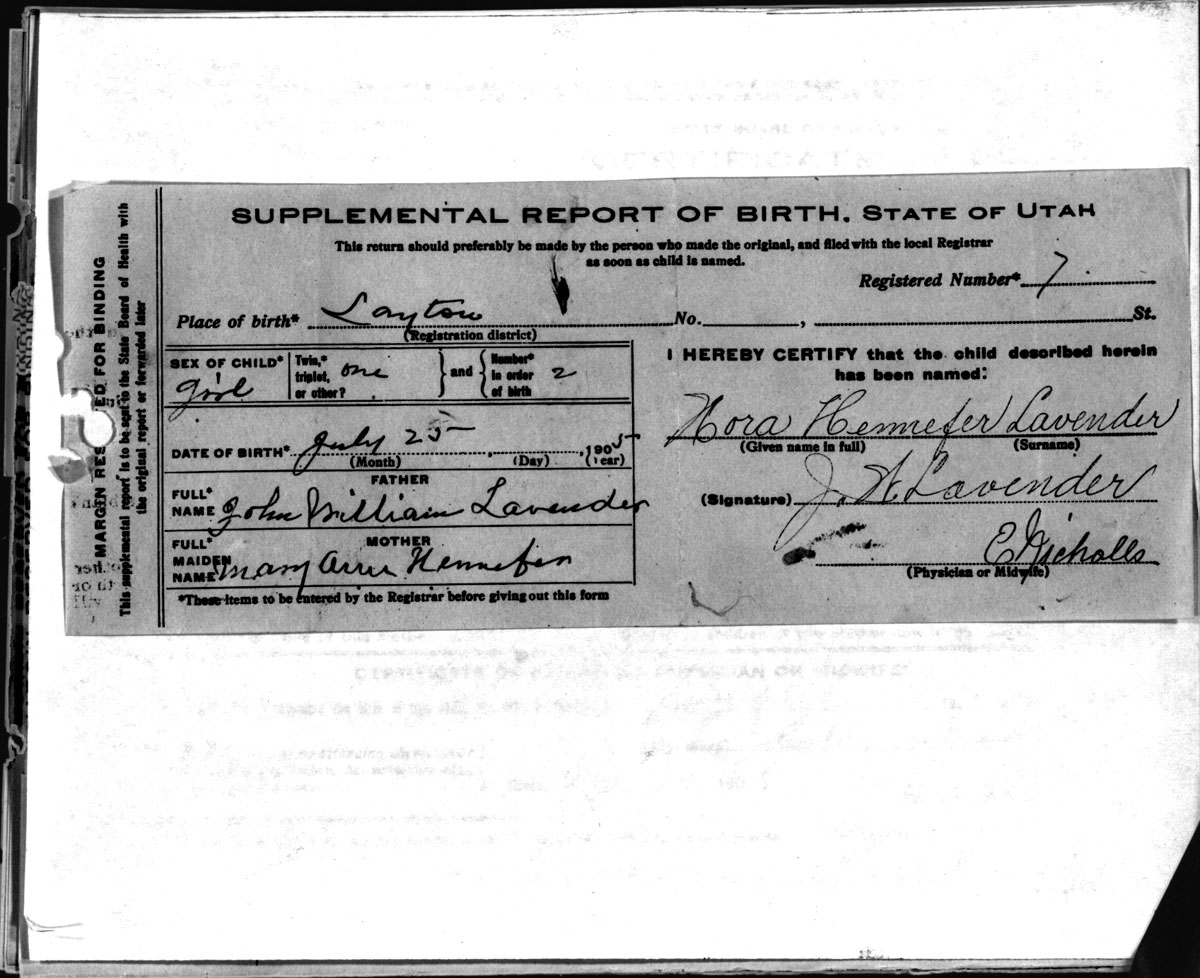 SUPPLEMENTAL REPORT OF BIRTH. STATE OF UTAH
This return should preferably be made by the person who made the original, and filed with the local Registrar
as soon as child is named.
Registered Number* 7
Place of birth* Layton No. , St.
(Registration district)
SEX OF CHILD*
Girl
Twin,*
triplet,
or other?
one
and
Number*
in order
of birth
2
DATE OF BIRTH* July 25 , , 1905
(Month) (Day) (Year)
FATHER
FULL*
NAME John William Lavender
MOTHER
FULL*
MAIDEN
NAME Mary Ann Hennefer
*These items to be entered by the Registrar before giving out this form
I HEREBY CERTIFY that the child described herein
has been named:
Nora Hennefer Lavender
(Given name in full) (Surname)
(Signature) J. W. Lavender
E Nicholls
(Physician or Midwife)
MARGIN RESERVED FOR BINDING
This supplemental report is to be sent to the State Board of Health with
the original report or forwarded later